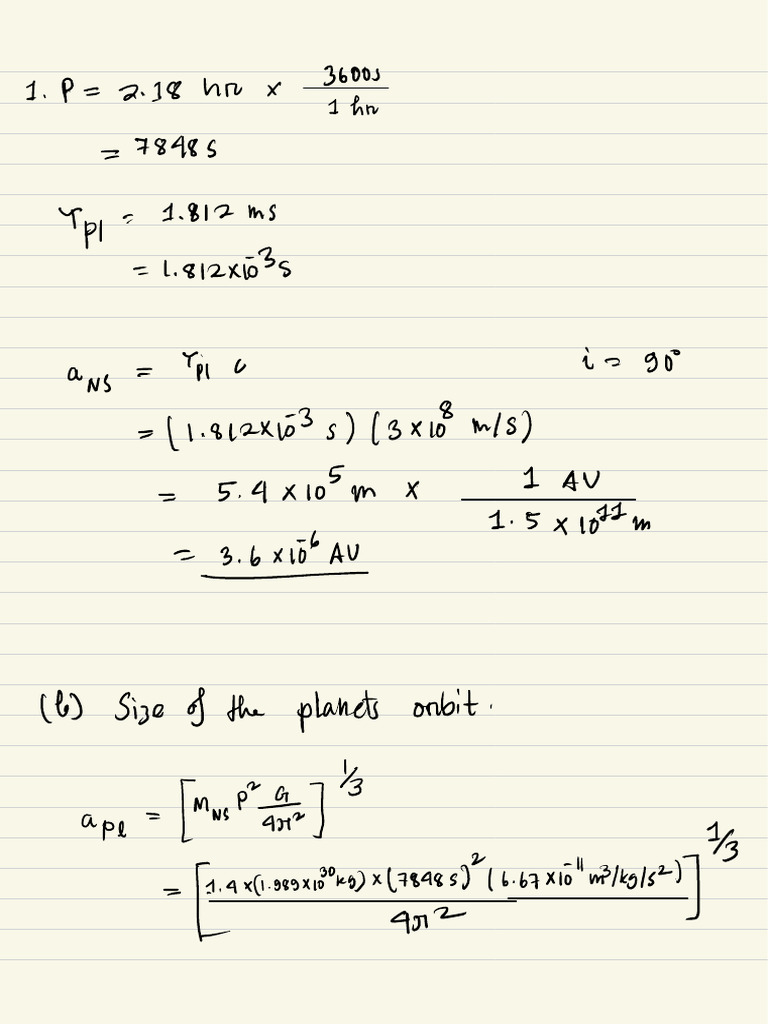 1. P = 2.18 hr × 3600s / 1 hr
= 7848 s
τ_pl = 1.812 ms
= 1.812×10^-3 s
a_NS = τ_pl c    i = 90°
= (1.812×10^-3 s) (3×10^8 m/s)
= 5.4 × 10^5 m × 1 AU / 1.5 × 10^11 m
= 3.6 × 10^-6 AU
(b) Size of the planets orbit.
a_pl = [M_NS P^2 G / 4π^2]^1/3
= [1.4×(1.989×10^30 kg) × (7848 s)^2 (6.67×10^-11 m^3/kg/s^2) / 4π^2]^1/3